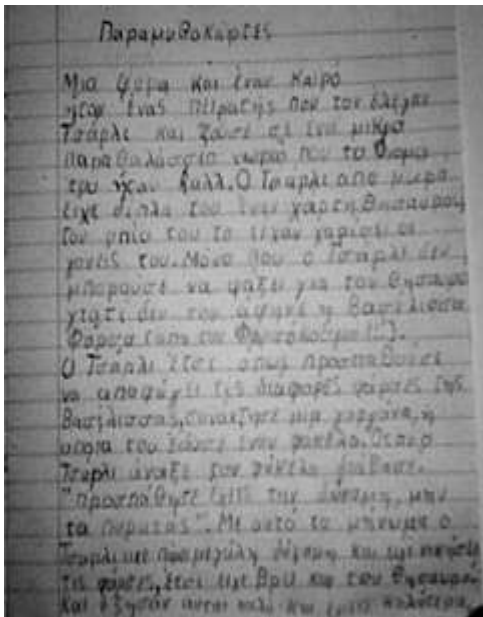 Παραμυθοκάρτες
Μια φορα και έναν καιρό
ήταν ένας πειρατής που τον έλεγαν
Τσάρλι και ζούσε σε ένα μικρό
παραθαλάσσιο χωριό που το όνομα
του ήταν Καλλ. Ο Τσάρλι απο μικρό
είχε διπλα του έναν χάρτη θησαυρού
Τον οποίο του το είχαν χαρίσει οι
γονείς του. Μόνο που ο Τσάρλι δεν
μπορούσε να ψάξει για τον θησαυρό
γιατί δεν τον άφηνε η Βασίλισσα
Ο Τσάρλι έτσι όπως προσπαθούσε
να αποφύγει τις διαφορές της
Βασίλισσας, συνάντησε μια γοργόνα, η
οποία του έδωσε έναν φακελο. Όταν ο
Τσάρλι άνοιξε τον φάκελο διάβασε.
"Προσπάθησε την δύναμη, μην
τα παρατάς". Με αυτό το μήνυμα ο
Τσαρλι μεγάλη δύναμη και
τις έτσι είχε βρει και τον θησαυρό
Και έζησαν αυτοί καλά και εμείς καλύτερα